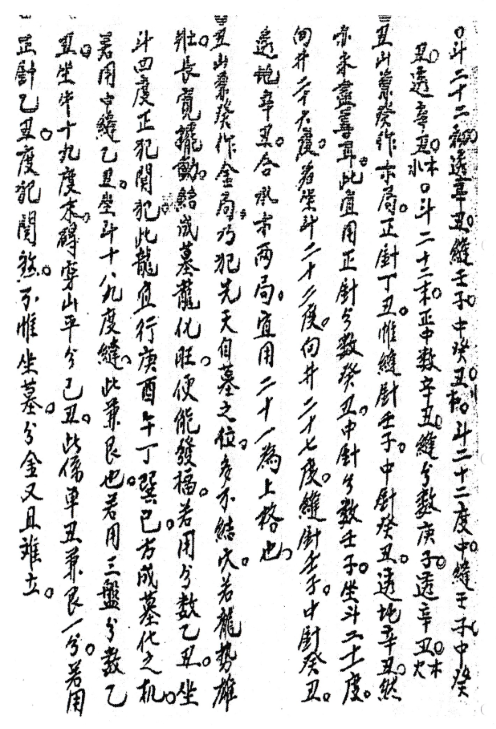 〇斗二十二初透辛丑縫壬子中癸丑〇斗二十二度中縫壬子中癸
丑透辛丑〇斗二十二末正中数辛丑縫分数庚子透辛丑
丑山兼癸作水局正針丁丑惟縫針壬子中針癸丑透地辛丑然
亦未盡善耳此宜用正針分数癸丑中針分数壬子坐斗二十一度
向井二十六度若坐斗二十二度向井二十七度縫針壬子中針癸丑
透地辛丑合承末两局宜用二十一為上格也
丑山兼癸作金局乃犯先天自墓之位多不結穴若龍勢雄
壮長寛擺動結成墓龍化旺便能發福若用分数乙丑坐
斗四度正犯関犯此龍宜行庚酉午丁巽巳方成墓化之机
若用中縫乙丑坐斗十八九度縫此兼艮也若用三盤分数乙
丑坐牛十九度末碍穿山平分己丑此係単丑兼艮一分若用
正針乙丑度犯関煞不惟坐墓分金又且難立